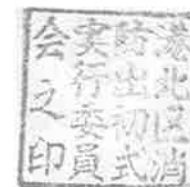 港北区消
防出初式
実行委員
会之印